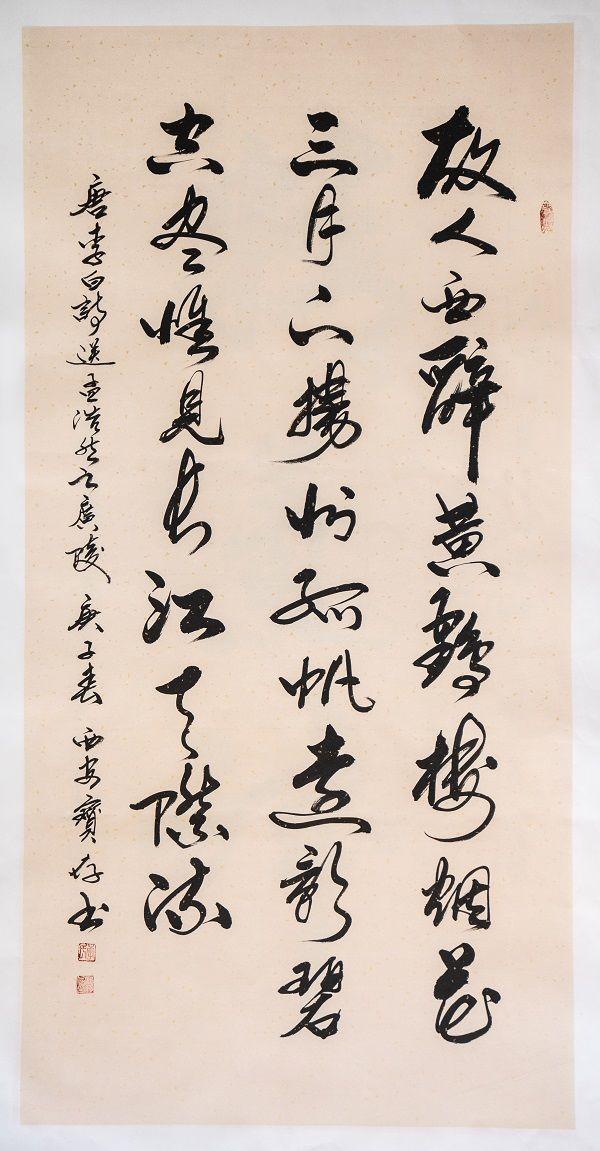 故人西辞黄鹤楼烟花
三月下揚州孤帆遠影碧
空尽惟見长江天際流
唐李白詩送孟浩然之廣陵 庚子春 西安寶存书